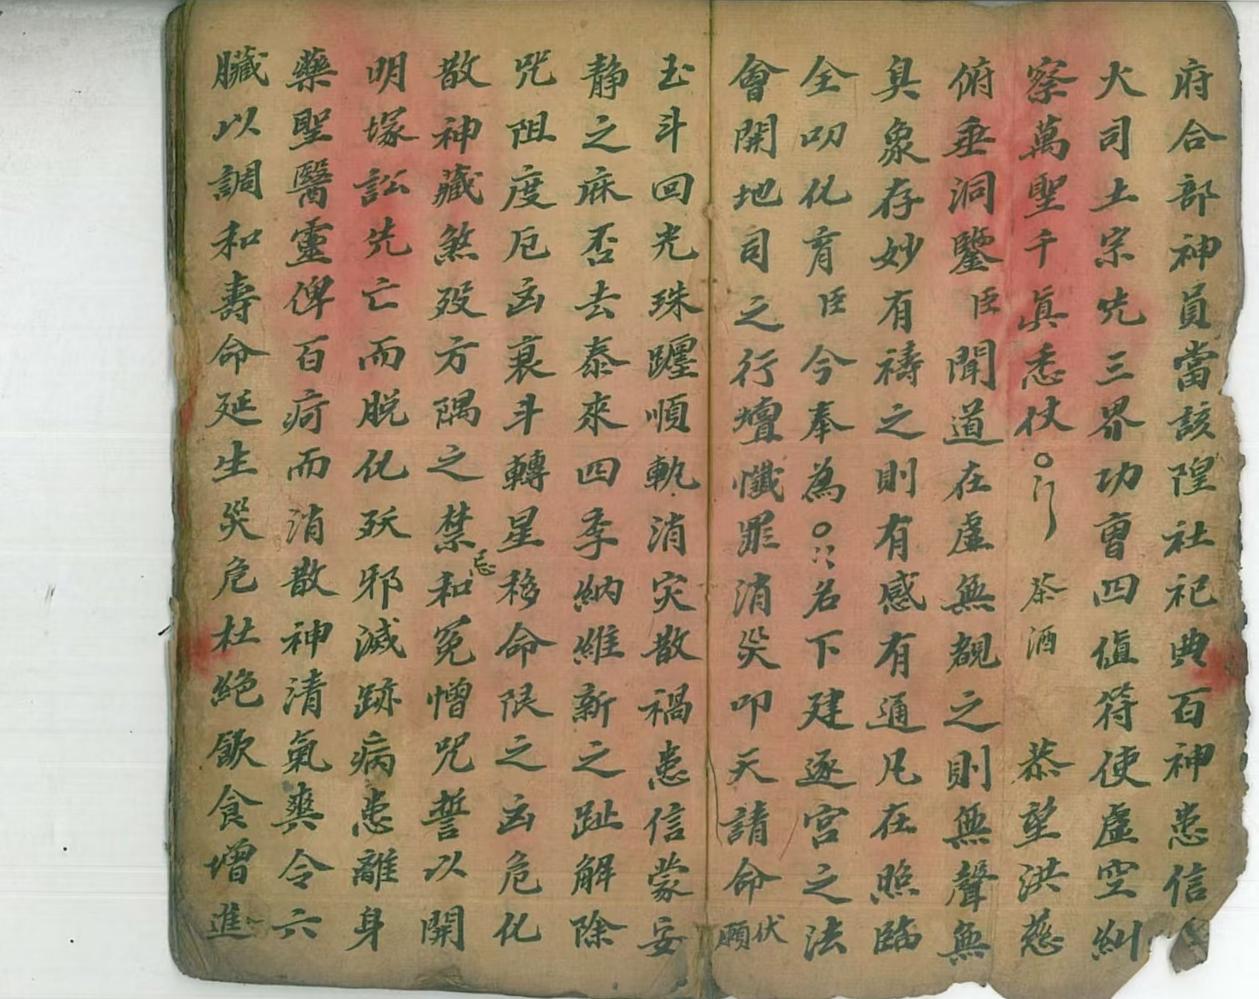 府合部神員當該隍社祀典百神患信
大司土宗先三界功曹四值符使虛空糾
察萬聖千真悉仗 茶酒 恭望洪慈
俯垂洞鑒臣聞道在虛無覩之則無聲無
臭象存妙有禱之則有感有通凡在照臨
全叨化育臣今奉為 名下建逐宮之法
會開地司之行壇懺罪消災叩天請命伏願
玉斗回光珠躔順軌消灾散禍患信蒙安
静之庥否去泰來四季納維新之趾解除
咒阻度厄凶衰斗轉星移命限之凶危化
散神藏煞歿方隅之禁忌和冤憎咒誓以開
明塚訟先亡而脱化妖邪滅跡病患離身
藥聖醫靈俾百疴而消散神清氣爽令六
臟以調和壽命延生災危杜絶飲食增進